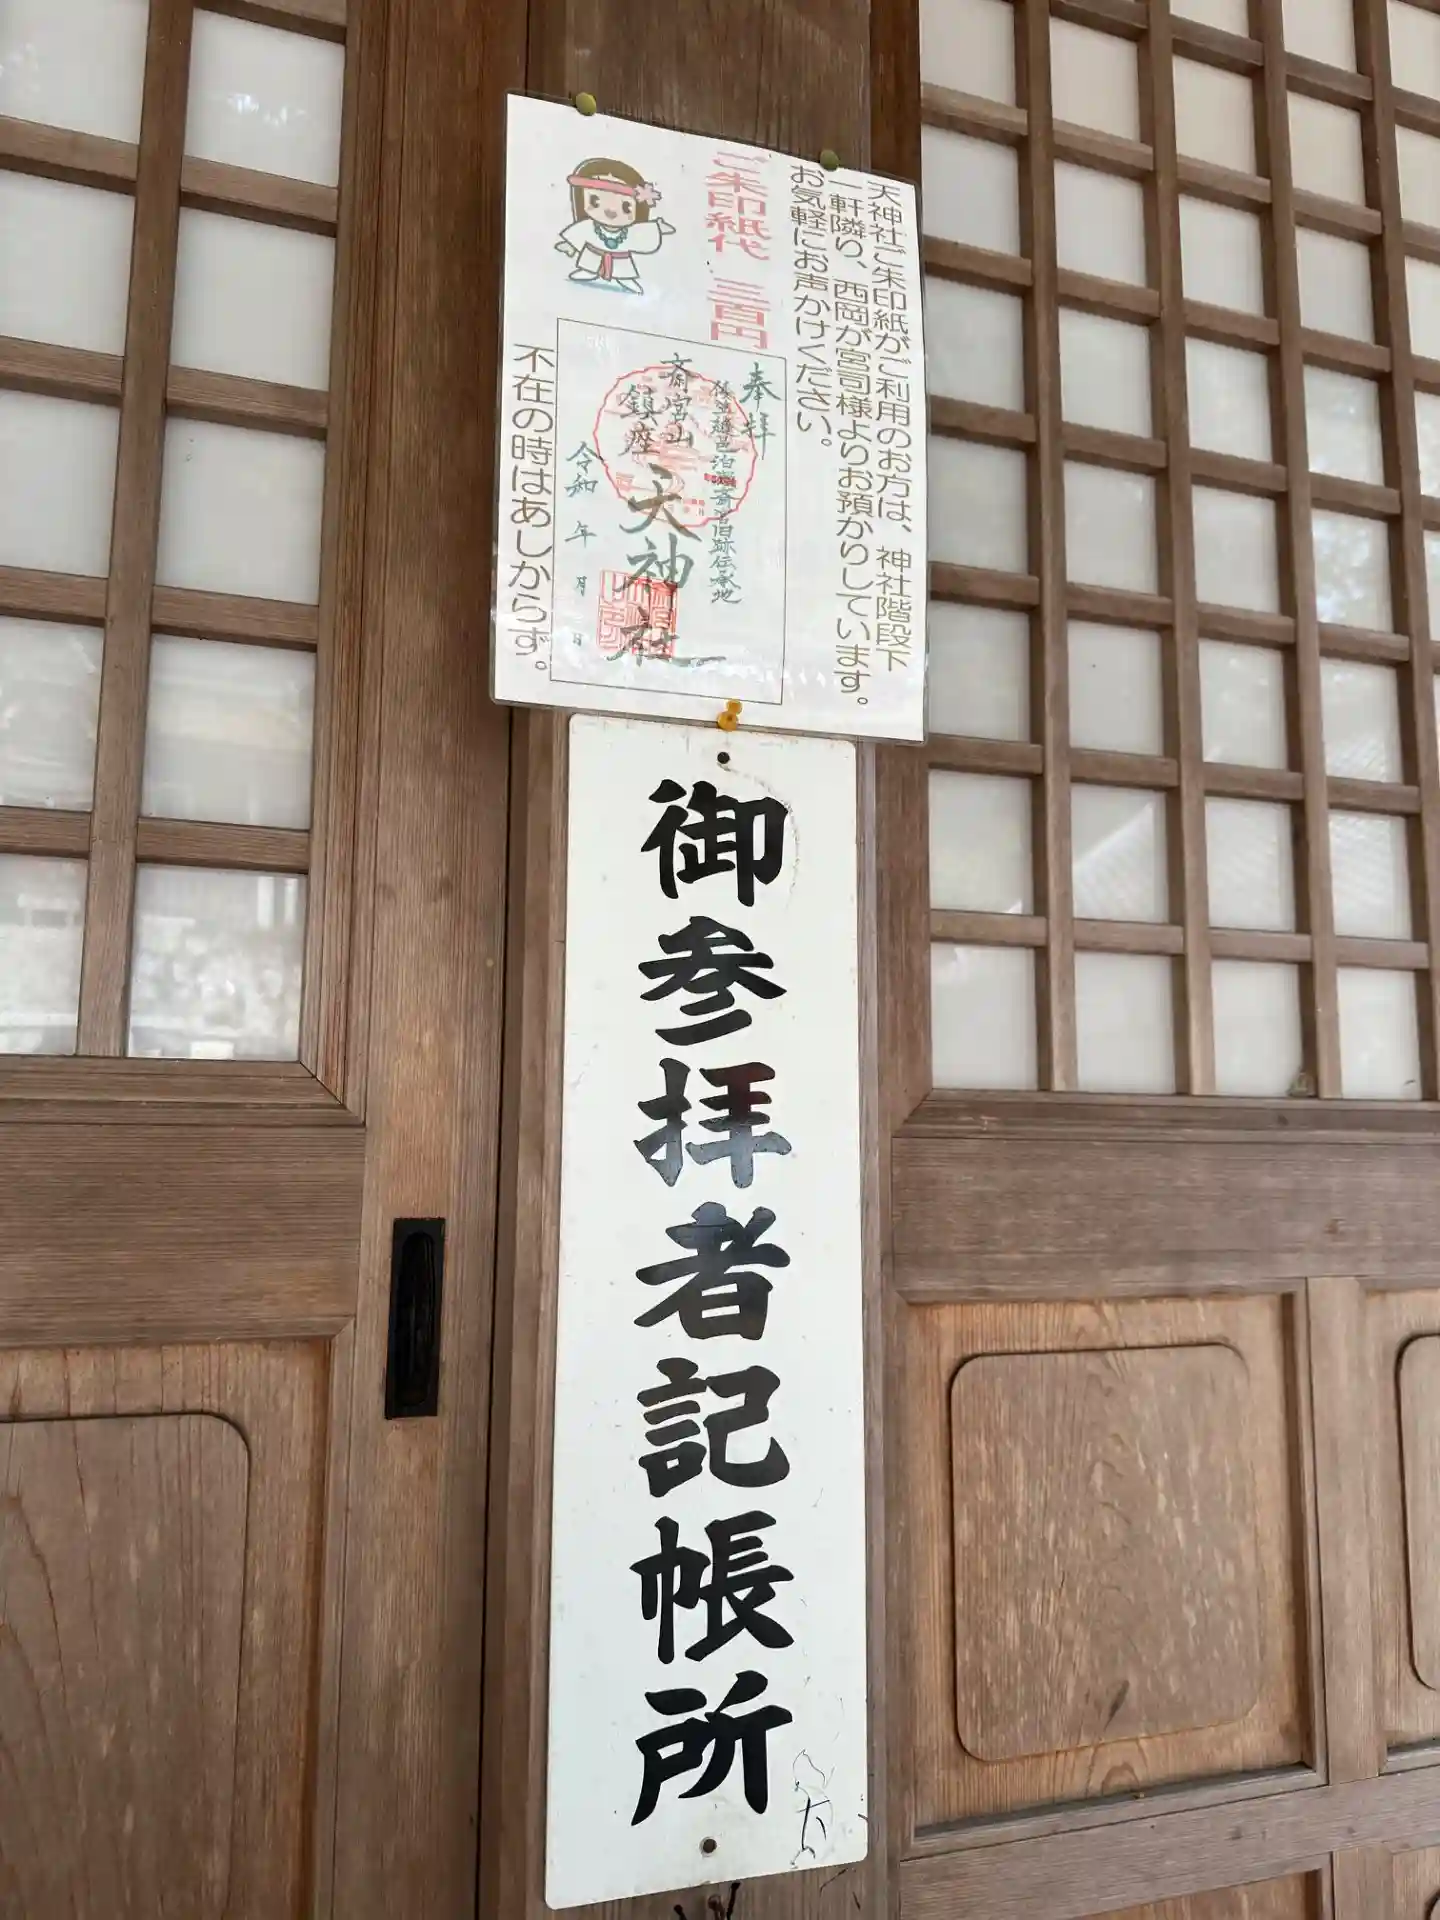 天神社ご朱印紙がご利用のお方は、神社階段下
一軒隣り、西岡が宮司様よりお預かりしています。
お気軽にお声かけください。
ご朱印紙代　三百円
奉拝
斎宮旧跡伝承地
斎宮山
鎮座
天神社
令和　年　月　日
不在の時はあしからず。
御参拝者記帳所